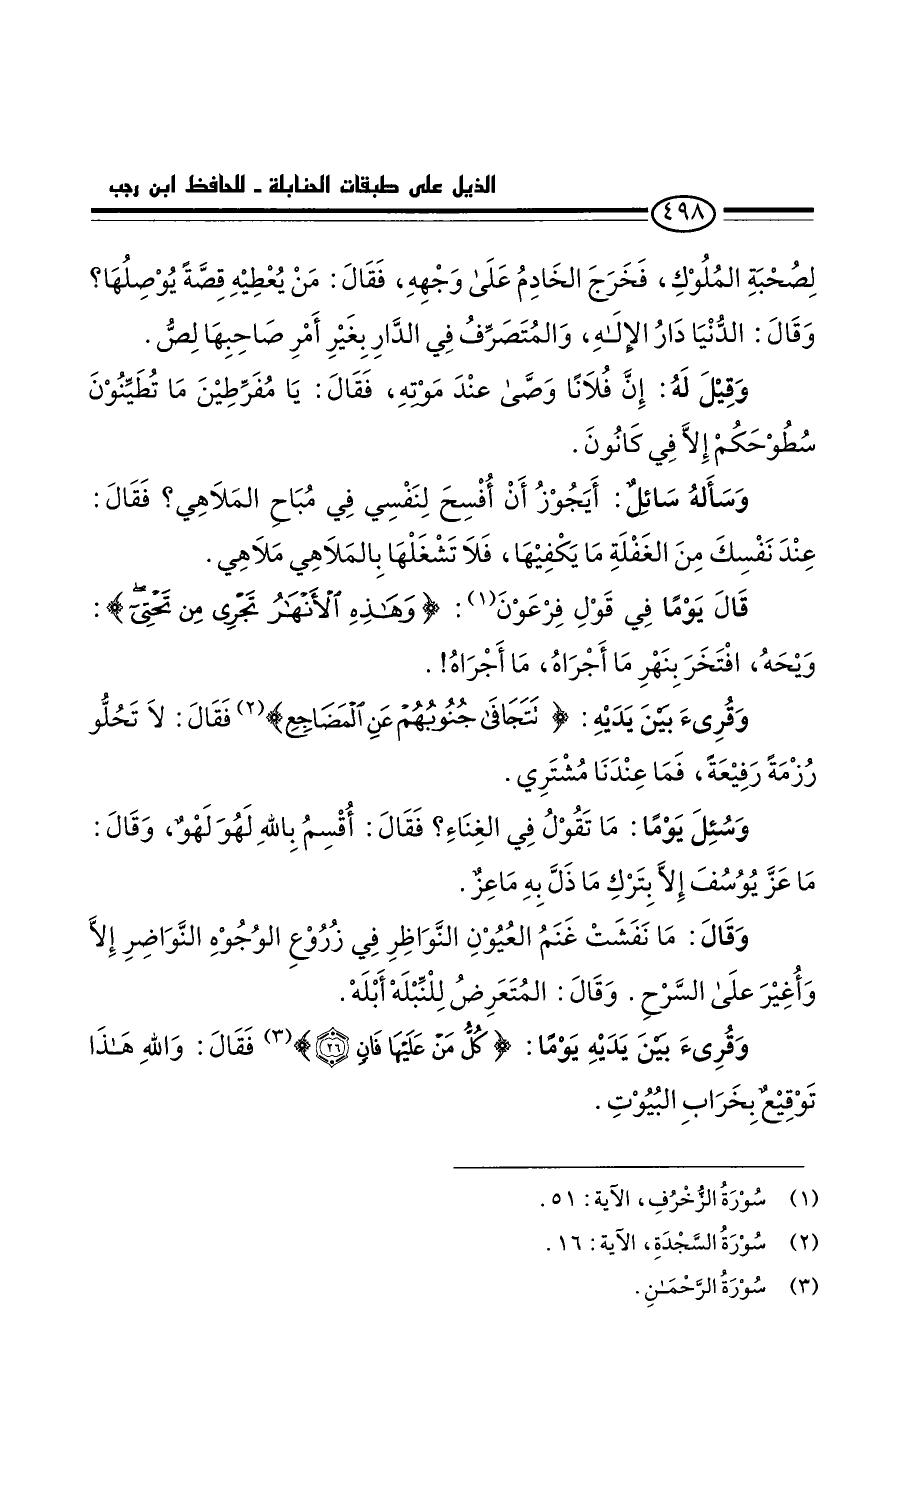 الذيل على طبقات الحنابلة ـ للحافظ ابن رجب
٤٩٨
لِصُحْبَةِ المُلُوْكِ، فَخَرَجَ الخَادِمُ عَلَىٰ وَجْهِهِ، فَقَالَ: مَنْ يُعْطِيْهِ قِصَّةً يُوْصِلُهَا؟
وَقَالَ: الدُّنْيَا دَارُ الإِلَـٰهِ، وَالمُتَصَرِّفُ فِي الدَّارِ بِغَيْرِ أَمْرِ صَاحِبِهَا لِصٌّ.
وَقِيْلَ لَهُ: إِنَّ فُلَانًا وَصَّىٰ عِنْدَ مَوْتِهِ، فَقَالَ: يَا مُفَرِّطِيْنَ مَا تُطَيِّنُوْنَ
سُطُوْحَكُمْ إِلاَّ فِي كَانُونَ.
وَسَأَلهُ سَائِلٌ: أَيَجُوْزُ أَنْ أُفْسِحَ لِنَفْسِي فِي مُبَاحِ المَلَاهِي؟ فَقَالَ:
عِنْدَ نَفْسِكَ مِنَ الغَفْلَةِ مَا يَكْفِيْهَا، فَلَا تَشْغَلْهَا بِالمَلَاهِي مَلَاهِي.
قَالَ يَوْمًا فِي قَوْلِ فِرْعَوْنَ(١): ﴿وَهَـٰذِهِ ٱلْأَنْهَـٰرُ تَجْرِى مِن تَحْتِىٓ ۖ﴾:
وَيْحَهُ، افْتَخَرَ بِنَهْرٍ مَا أَجْرَاهُ، مَا أَجْرَاهُ!.
وَقُرِىءَ بَيْنَ يَدَيْهِ: ﴿ نَتَجَافَىٰ جُنُوبُهُمْ عَنِ ٱلْمَضَاجِعِ﴾(٢) فَقَالَ: لَا تَحُلُّو
رُزْمَةً رَفِيْعَةً، فَمَا عِنْدَنَا مُشْتَرِي.
وَسُئِلَ يَوْمًا: مَا تَقُوْلُ فِي الغِنَاءِ؟ فَقَالَ: أُقْسِمُ بِاللهِ لَهُوَ لَهْوٌ، وَقَالَ:
مَا عَزَّ يُوْسُفَ إِلاَّ بِتَرْكِ مَا ذَلَّ بِهِ مَاعِزٌ.
وَقَالَ: مَا نَفَشَتْ غَنَمُ العُيُوْنِ النَّوَاظِرِ فِي زُرُوْعِ الوُجُوْهِ النَّوَاضِرِ إِلاَّ
وَأُغِيْرَ عَلَىٰ السَّرْحِ. وَقَالَ: المُتَعَرِضُ لِلْنِّبْلَهْ أَبْلَهْ.
وَقُرِىءَ بَيْنَ يَدَيْهِ يَوْمًا: ﴿ كُلُّ مَنْ عَلَيْهَا فَانٍ ٢٦﴾(٣) فَقَالَ: وَاللهِ هَـٰذَا
تَوْقِيْعٌ بِخَرَابِ البُيُوْتِ.
(١) سُوْرَةُ الزُّخْرُفِ، الآية: ٥١.
(٢) سُوْرَةُ السَّجْدَةِ، الآية: ١٦.
(٣) سُوْرَةُ الرَّحْمَـٰنِ.